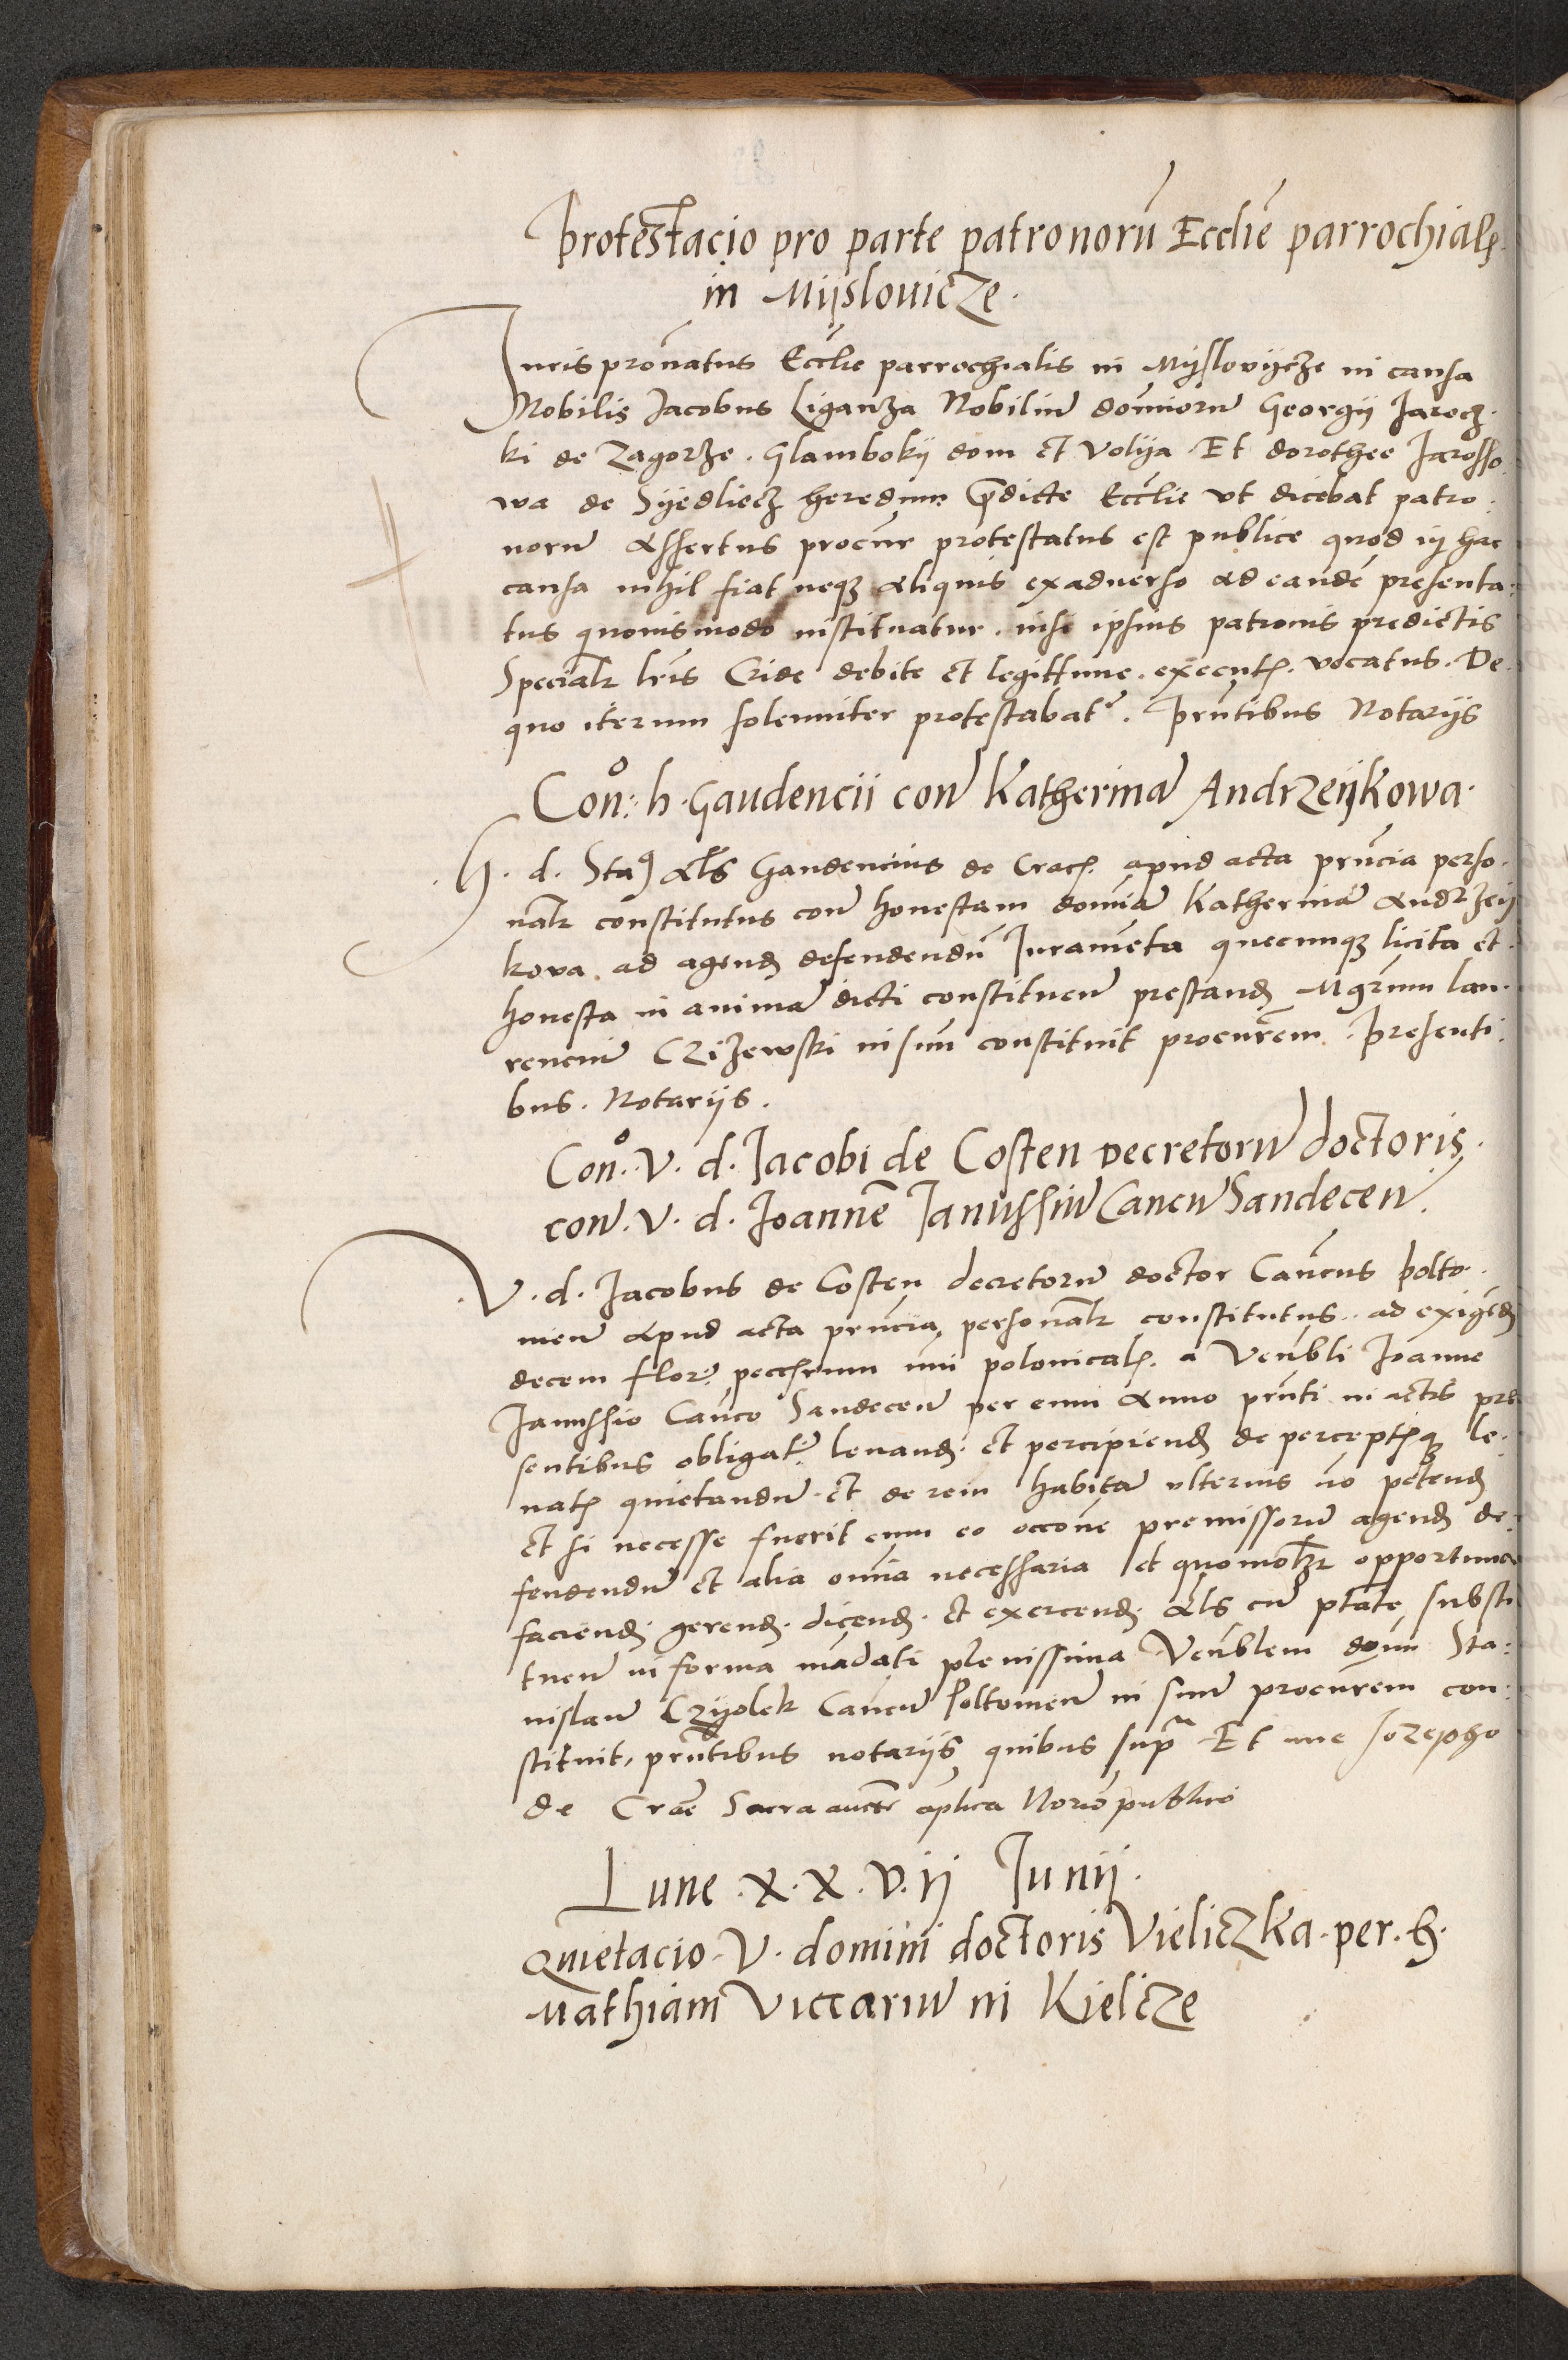 Protestacio pro parte patronorū Ecclie parrochialꝭ
in Mijslouicze.
Juris pronatus Ecclie parrochialis in Myslovijcze in causa
Nobilis Jacobus Liganza Nobiliu domiorū Georgij Jarocz
ki de Zagorze. Glambokij dom et Volija Et dorothee Jarosso
wa de Sijedliecz heredum predicte Ecclie vt dicebat patro
norū Assertus procur protestatus est publice quod in hac
causa nihil fiat neqꝫ aliquis ex aduerso ad eandē presenta
tus quouismodo instituatur. nisi ipsius patronis predictis
Specialr lris Cride debite et legittime. executꝭ. vocatus. De
quo iterum solenniter protestabat. Prntibus Notarijs
Con. h. Gaudencii con Katherina Andrzeijkowa.
H. d. Sta als Gaudencius de Cracꝭ. apud acta prncia perso
nalr constitutus con honestam domia Katherina Andrzeij
kova. ad agendꝭ defendendū Juramēta quecunqꝫ licita et
honesta in anima dicti constituen prestandꝭ Mgrum lau
renciu Czizewski in suū constituit procurēm. Presenti
bus. Notarijs.
Con. V. d. Jacobi de Costen Decretorū doctoris.
con. V. d. Joannē Janussiu Cancu Sandecen.
V. d. Jacobus de Costen decretorū doctor Cancus polto
nien Apud acta prncia personalr constitutus. ad exigēdꝭ
decem flor. pecchrum nni polonicalꝭ. a Venbli Joanne
Janussio Canco Sandecen per eum Anno prnti in actis pre
sentibus obligat. leuandꝭ. et percipiendꝭ de perceptꝭqꝫ le
uatꝭ quietandū et de rem habita vlterius no petendꝭ
et si necesse fuerit cum eo occone premissorū agendꝭ de
fendendū et alia omia necessaria et quomolzr opportuna
faciendꝭ. gerendꝭ. dicendꝭ. et exercendꝭ. Als cū ptate substi
tuen in forma mādati plenissima Venblem dom Sta
nislau Czijolek Cancu Poltonien in suū procurēm con
stituit, prntibus notarijs quibus supra Et me Jozepho
de Crac Sacra auctte aplica Norio publico
Lune .X.X.V.ij Junij.
Quietacio. V. domini doctoris Vieliczka. per. h.
Mathiam Viccariū in Kielcze